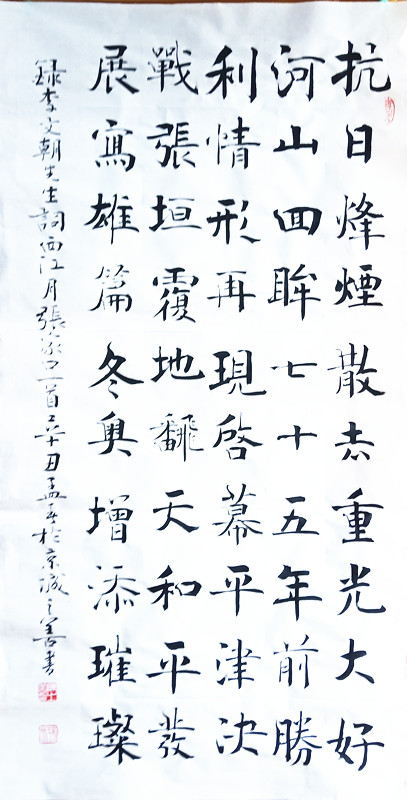 抗日烽煙散去重光大好
河山回眸七十五年前勝
利情形再現啓幕平津決
戰張垣覆地飜天和平發
展寫雄篇冬奧增添璀璨
録李文朝先生詞西江月張家口一首辛丑孟春於京城之善書